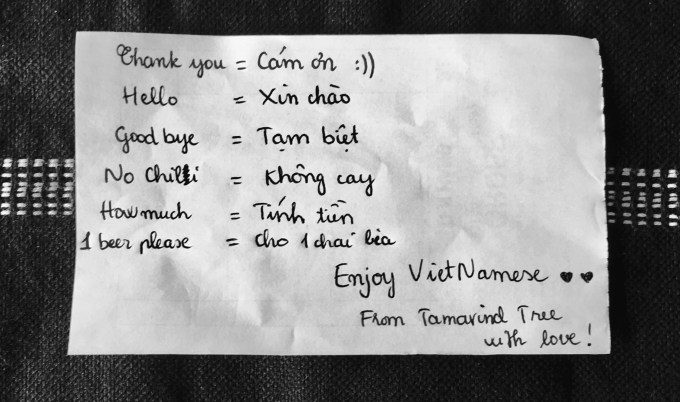 Thank you = Cám ơn :))
Hello = Xin chào
Good bye = Tạm biệt
No Chilli = Không cay
How much = Tính tiền
1 beer please = cho 1 chai bia
Enjoy VietNamese ♥ ♥
From Tamarind Tree
with love!